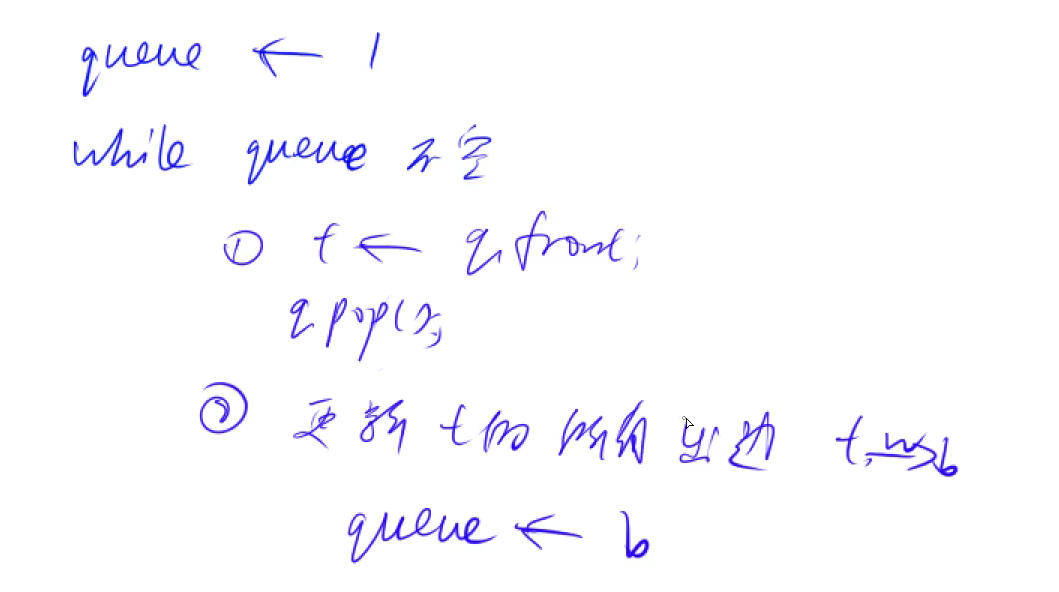 queue ← 1
while queue 不空
① t ← q.front;
q.pop();
② 更新 t的 所有 出边 t \xrightarrow{w} b
queue ← b